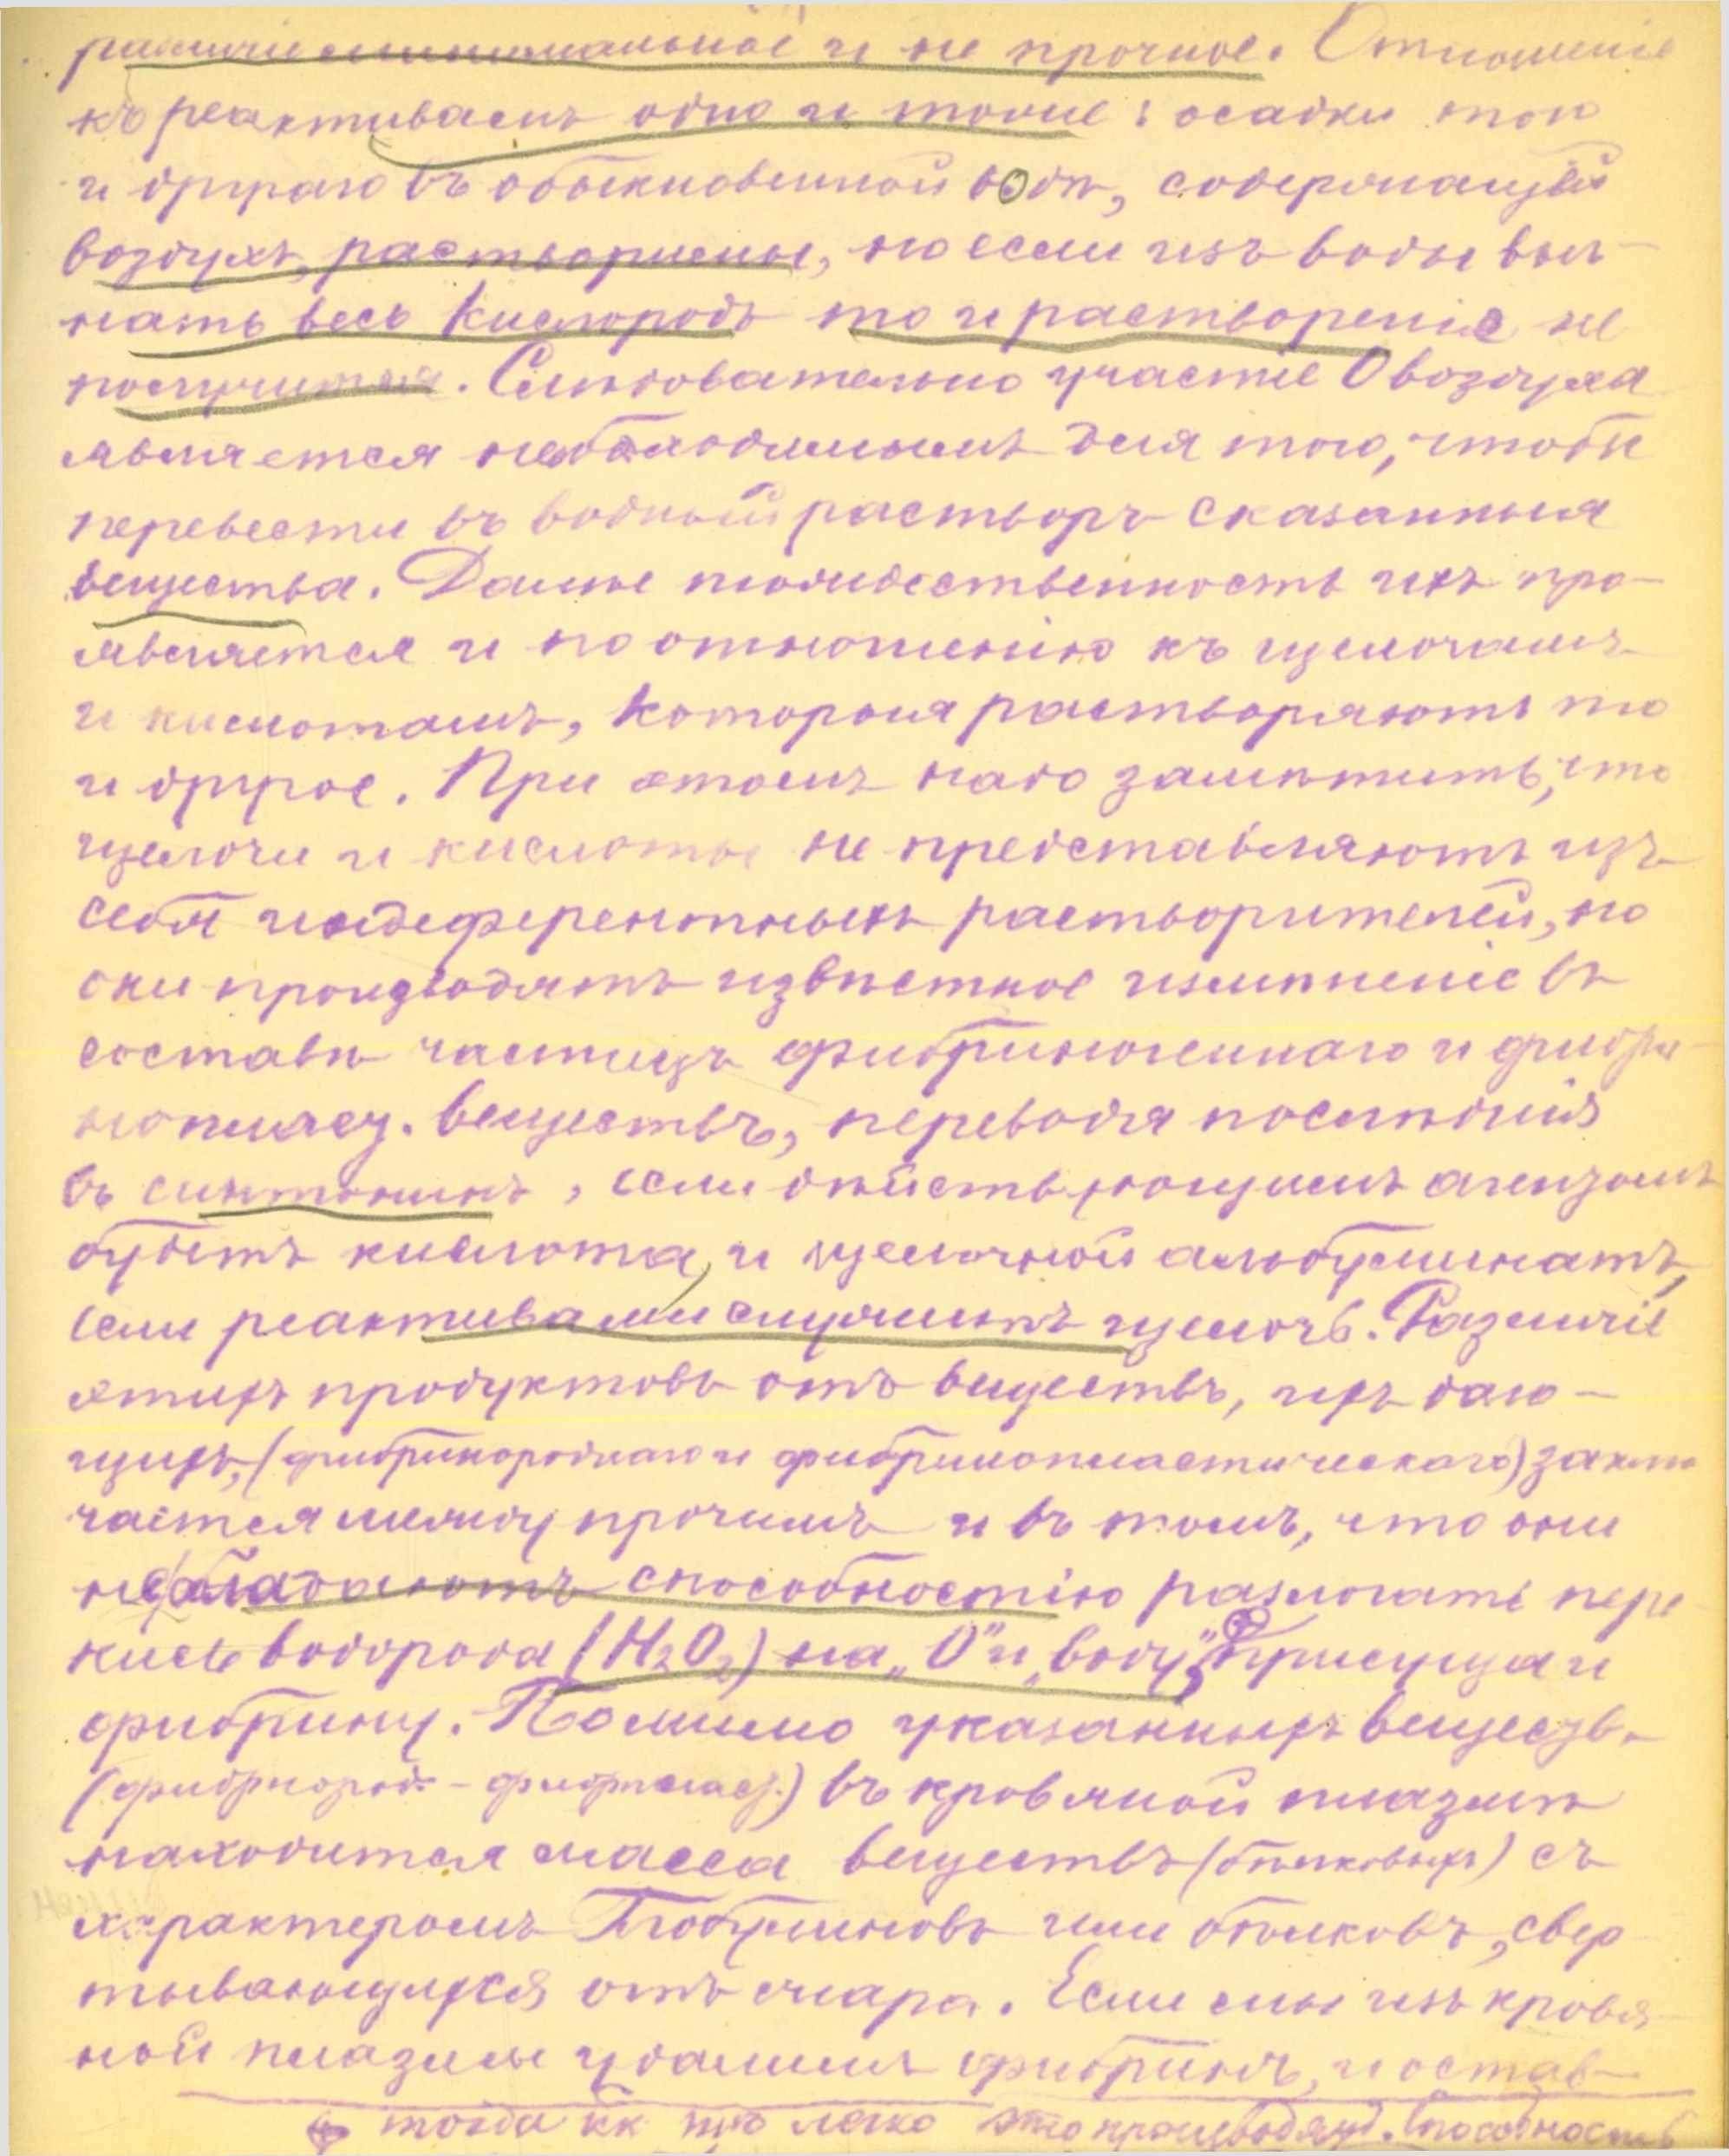 различіе минимальное и не прочное. Отношеніе
къ реактивамъ одно и тоже: осадки того
и другаго въ обыкновенной водѣ, содержащей
воздухъ, растворимы, но если изъ воды вы-
нать весь кислородъ то и раствореніе не
получится. Слѣдовательно участіе О воздуха
является необходимымъ для того, чтобы
перевести въ водный растворъ сказанныя
вещества. Далѣе тождественность ихъ про-
является и по отношенію къ щелочамъ
и кислотамъ, которыя растворяютъ то
и другое. При этомъ надо замѣтить, что
щелочи и кислоты не представляютъ изъ
себя индеферентныхъ растворителей, но
они производятъ извѣстное измѣненіе въ
составѣ частицъ фибриногеннаго и фибри-
нопласт. веществъ, переводя послѣднія
въ синтонинъ, если дѣйствующимъ агентомъ
будетъ кислота, и щелочной альбуминатъ,
если реактивами служитъ щелочь. Различіе
этихъ продуктовъ отъ веществъ, ихъ даю-
щихъ, (фибринороднаго и фибринопластическаго) заклю
чается между прочимъ и въ томъ, что они
не обладаютъ способностію разлогать пере
кись водорода (H₂O₂) на „О" и „воду", ⊕ присуща и
фибрину. Помимо указанныхъ веществъ
(фибринород - фибрпласт.) въ кровяной плазмѣ
находится масса веществъ (бѣлковыхъ) съ
характеромъ Глобулиновъ или бѣлковъ, свер
тывающихся отъ жара. Если мы изъ кровя
ной плазмы удалимъ фибринъ, и остав-
⊕ тогда кк легко это производятъ. Способность